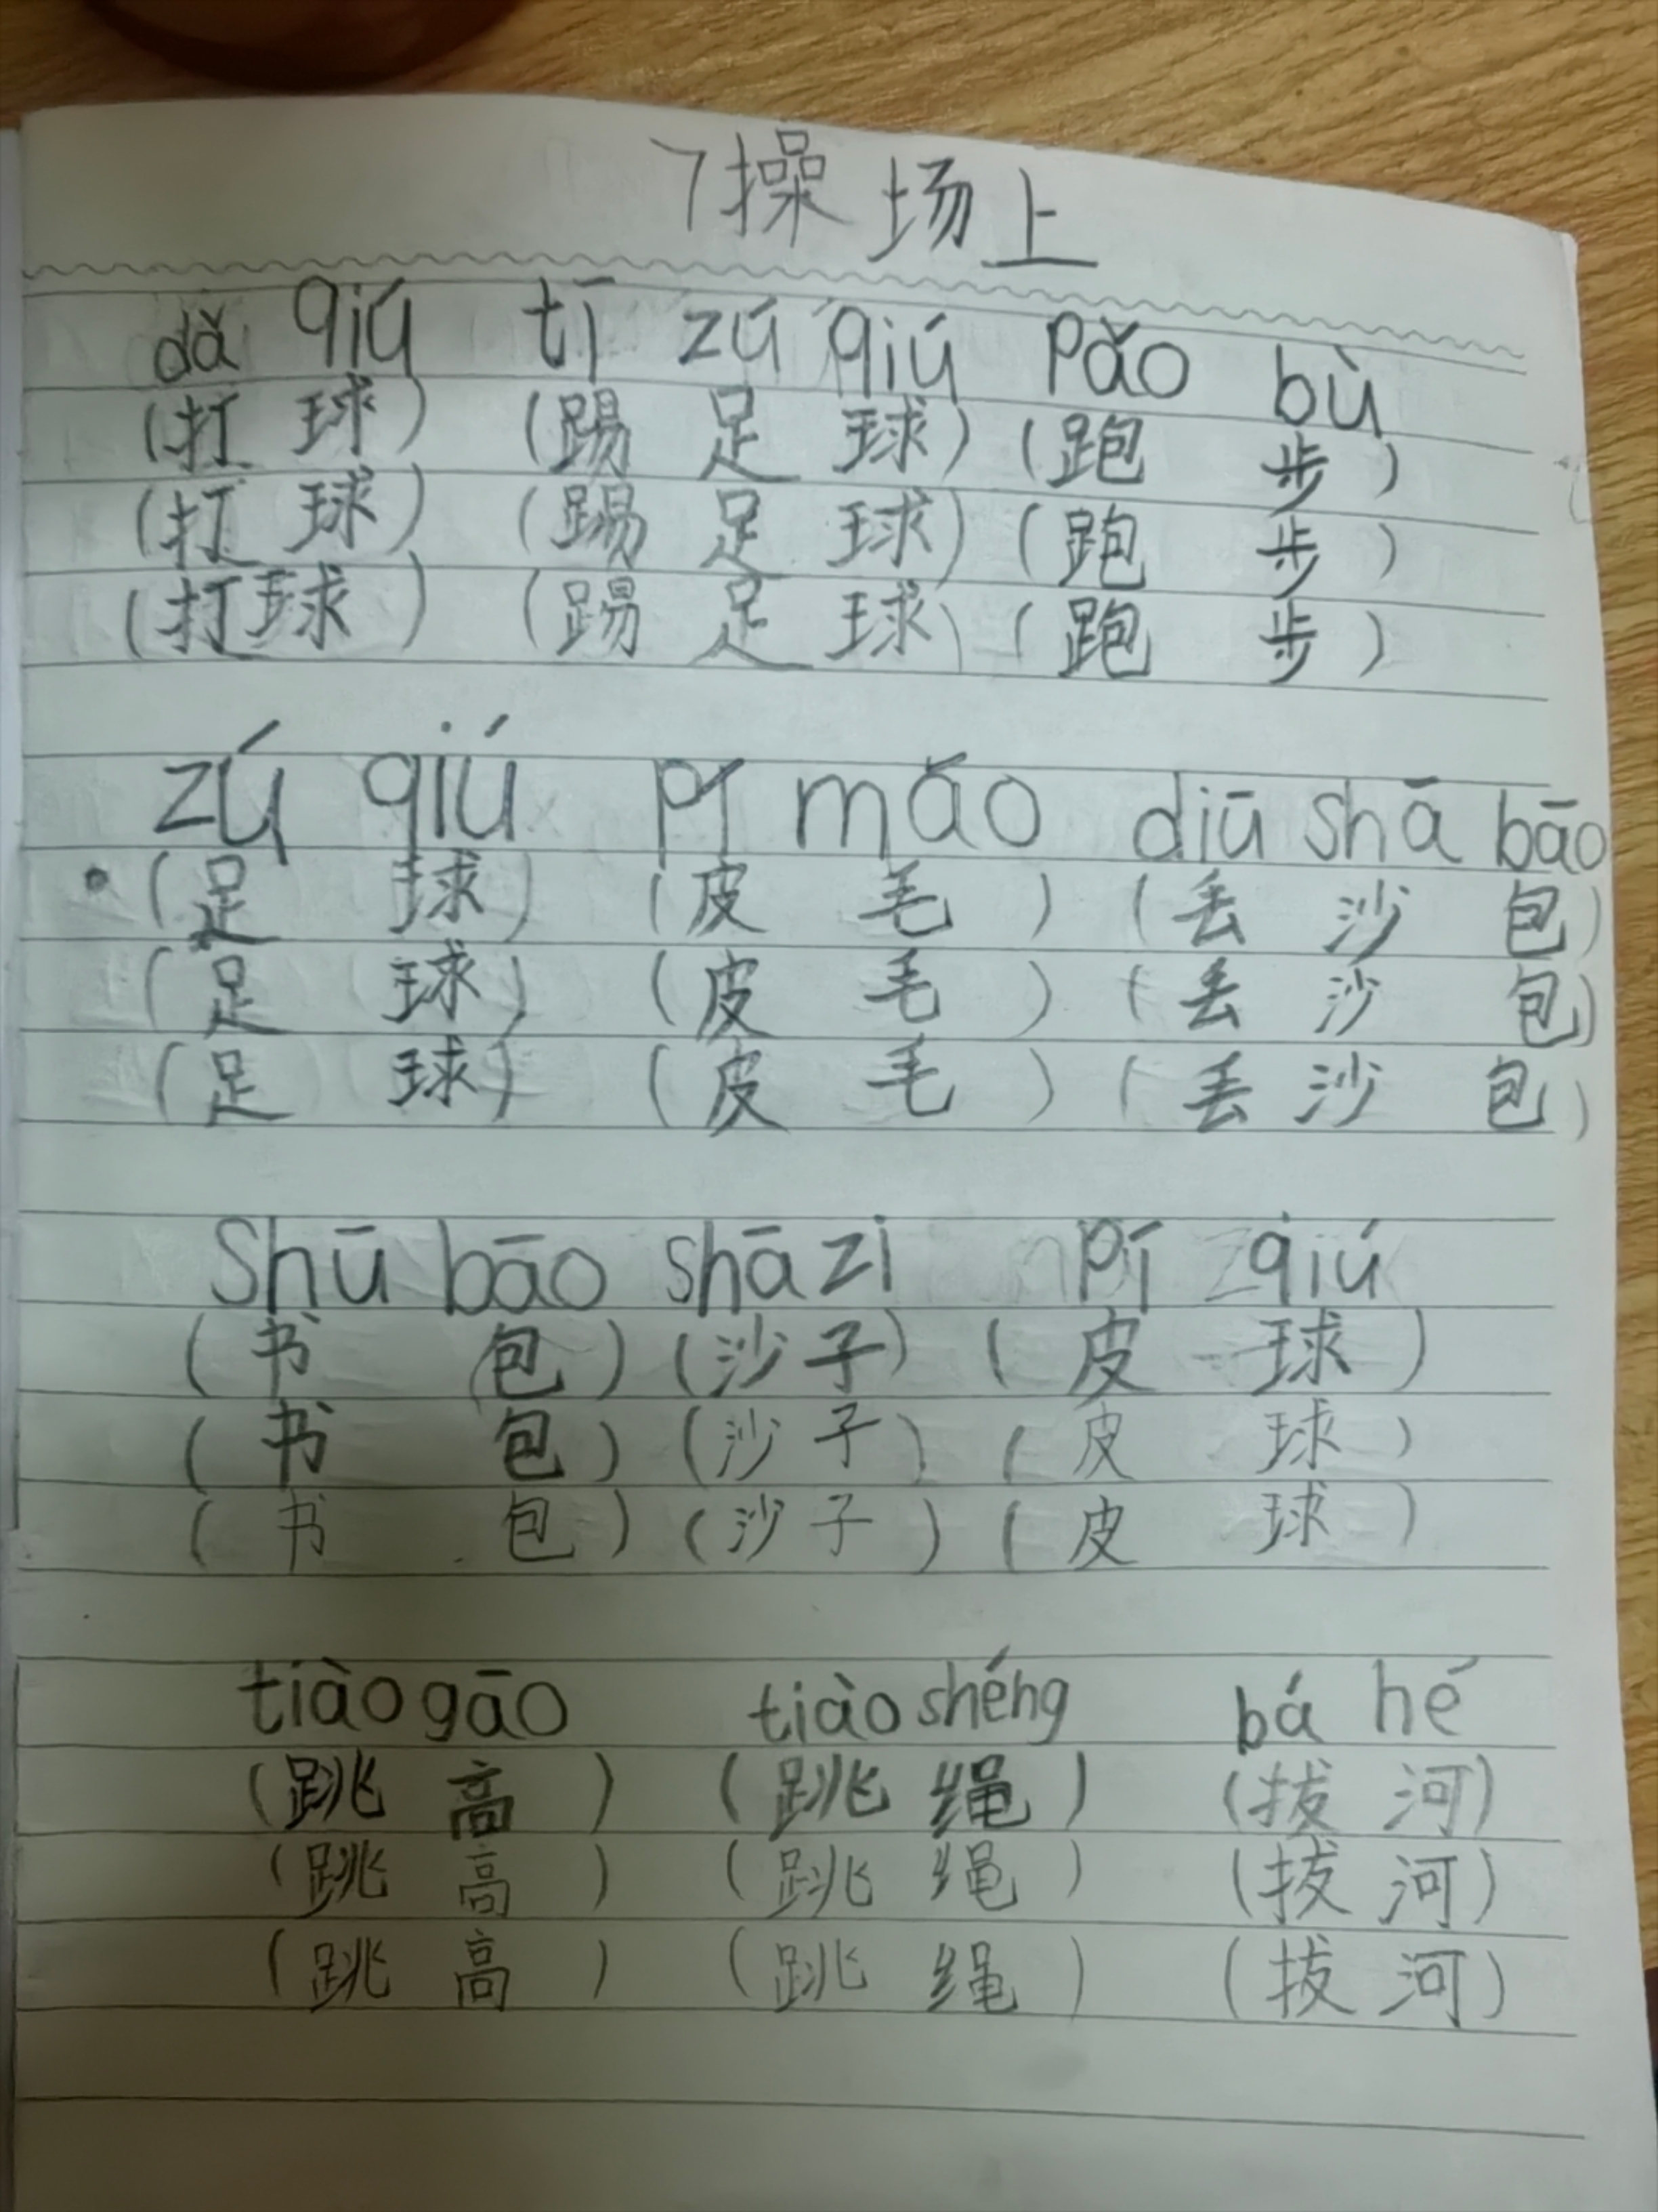 7操场上
dǎ qiú tī zú qiú pǎo bù
(打球) (踢足球) (跑步)
(打球) (踢足球) (跑步)
(打球) (踢足球) (跑步)
zú qiú pí mǎo diū shā bāo
(足球) (皮毛) (丢沙包)
(足球) (皮毛) (丢沙包)
(足球) (皮毛) (丢沙包)
Shū bāo shā zi pí qiú
(书包) (沙子) (皮球)
(书包) (沙子) (皮球)
(书包) (沙子) (皮球)
tiào gāo tiào shéng bá hé
(跳高) (跳绳) (拔河)
(跳高) (跳绳) (拔河)
(跳高) (跳绳) (拔河)